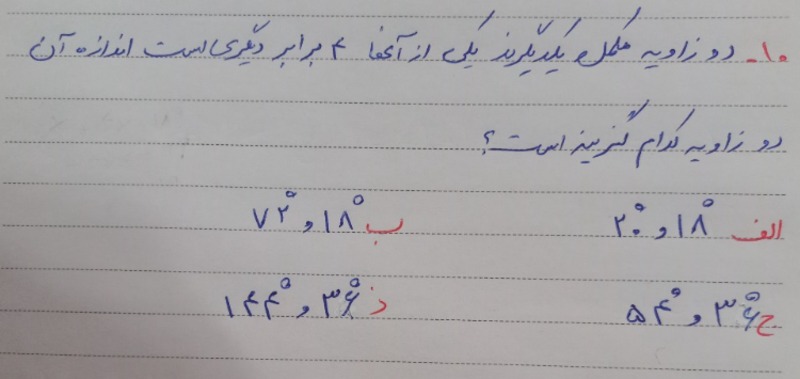 ۱۰- دو زاویه مکمل یکدیگرند یکی از آنها ۴ برابر دیگری است اندازه آن
دو زاویه کدام گزینه است؟
الف ۱۸° و ۲۰° ب ۱۸° و ۷۲°
ج ۳۶° و ۵۴° د ۳۶° و ۱۴۴°